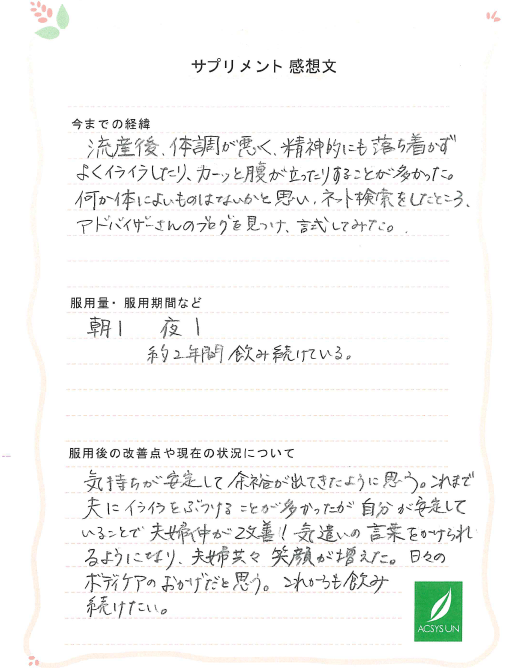 サプリメント 感想文
今までの経緯
流産後、体調が悪く、精神的にも落ち着かず
よくイライラしたり、カーッと腹が立ったりすることが多かった。
何か体によいものはないかと思い、ネット検索をしたところ、
アドバイザーさんのブログを見つけ、試してみた。
服用量・服用期間など
朝1 夜1
約2年間飲み続けている。
服用後の改善点や現在の状況について
気持ちが安定して余裕が出てきたように思う。これまで
夫にイライラをぶつけることが多かったが自分が安定して
いることで夫婦仲が改善！気遣いの言葉をかけられ
るようになり、夫婦共々笑顔が増えた。日々の
ボディケアのおかげだと思う。これからも飲み
続けたい。
ACSYSUN